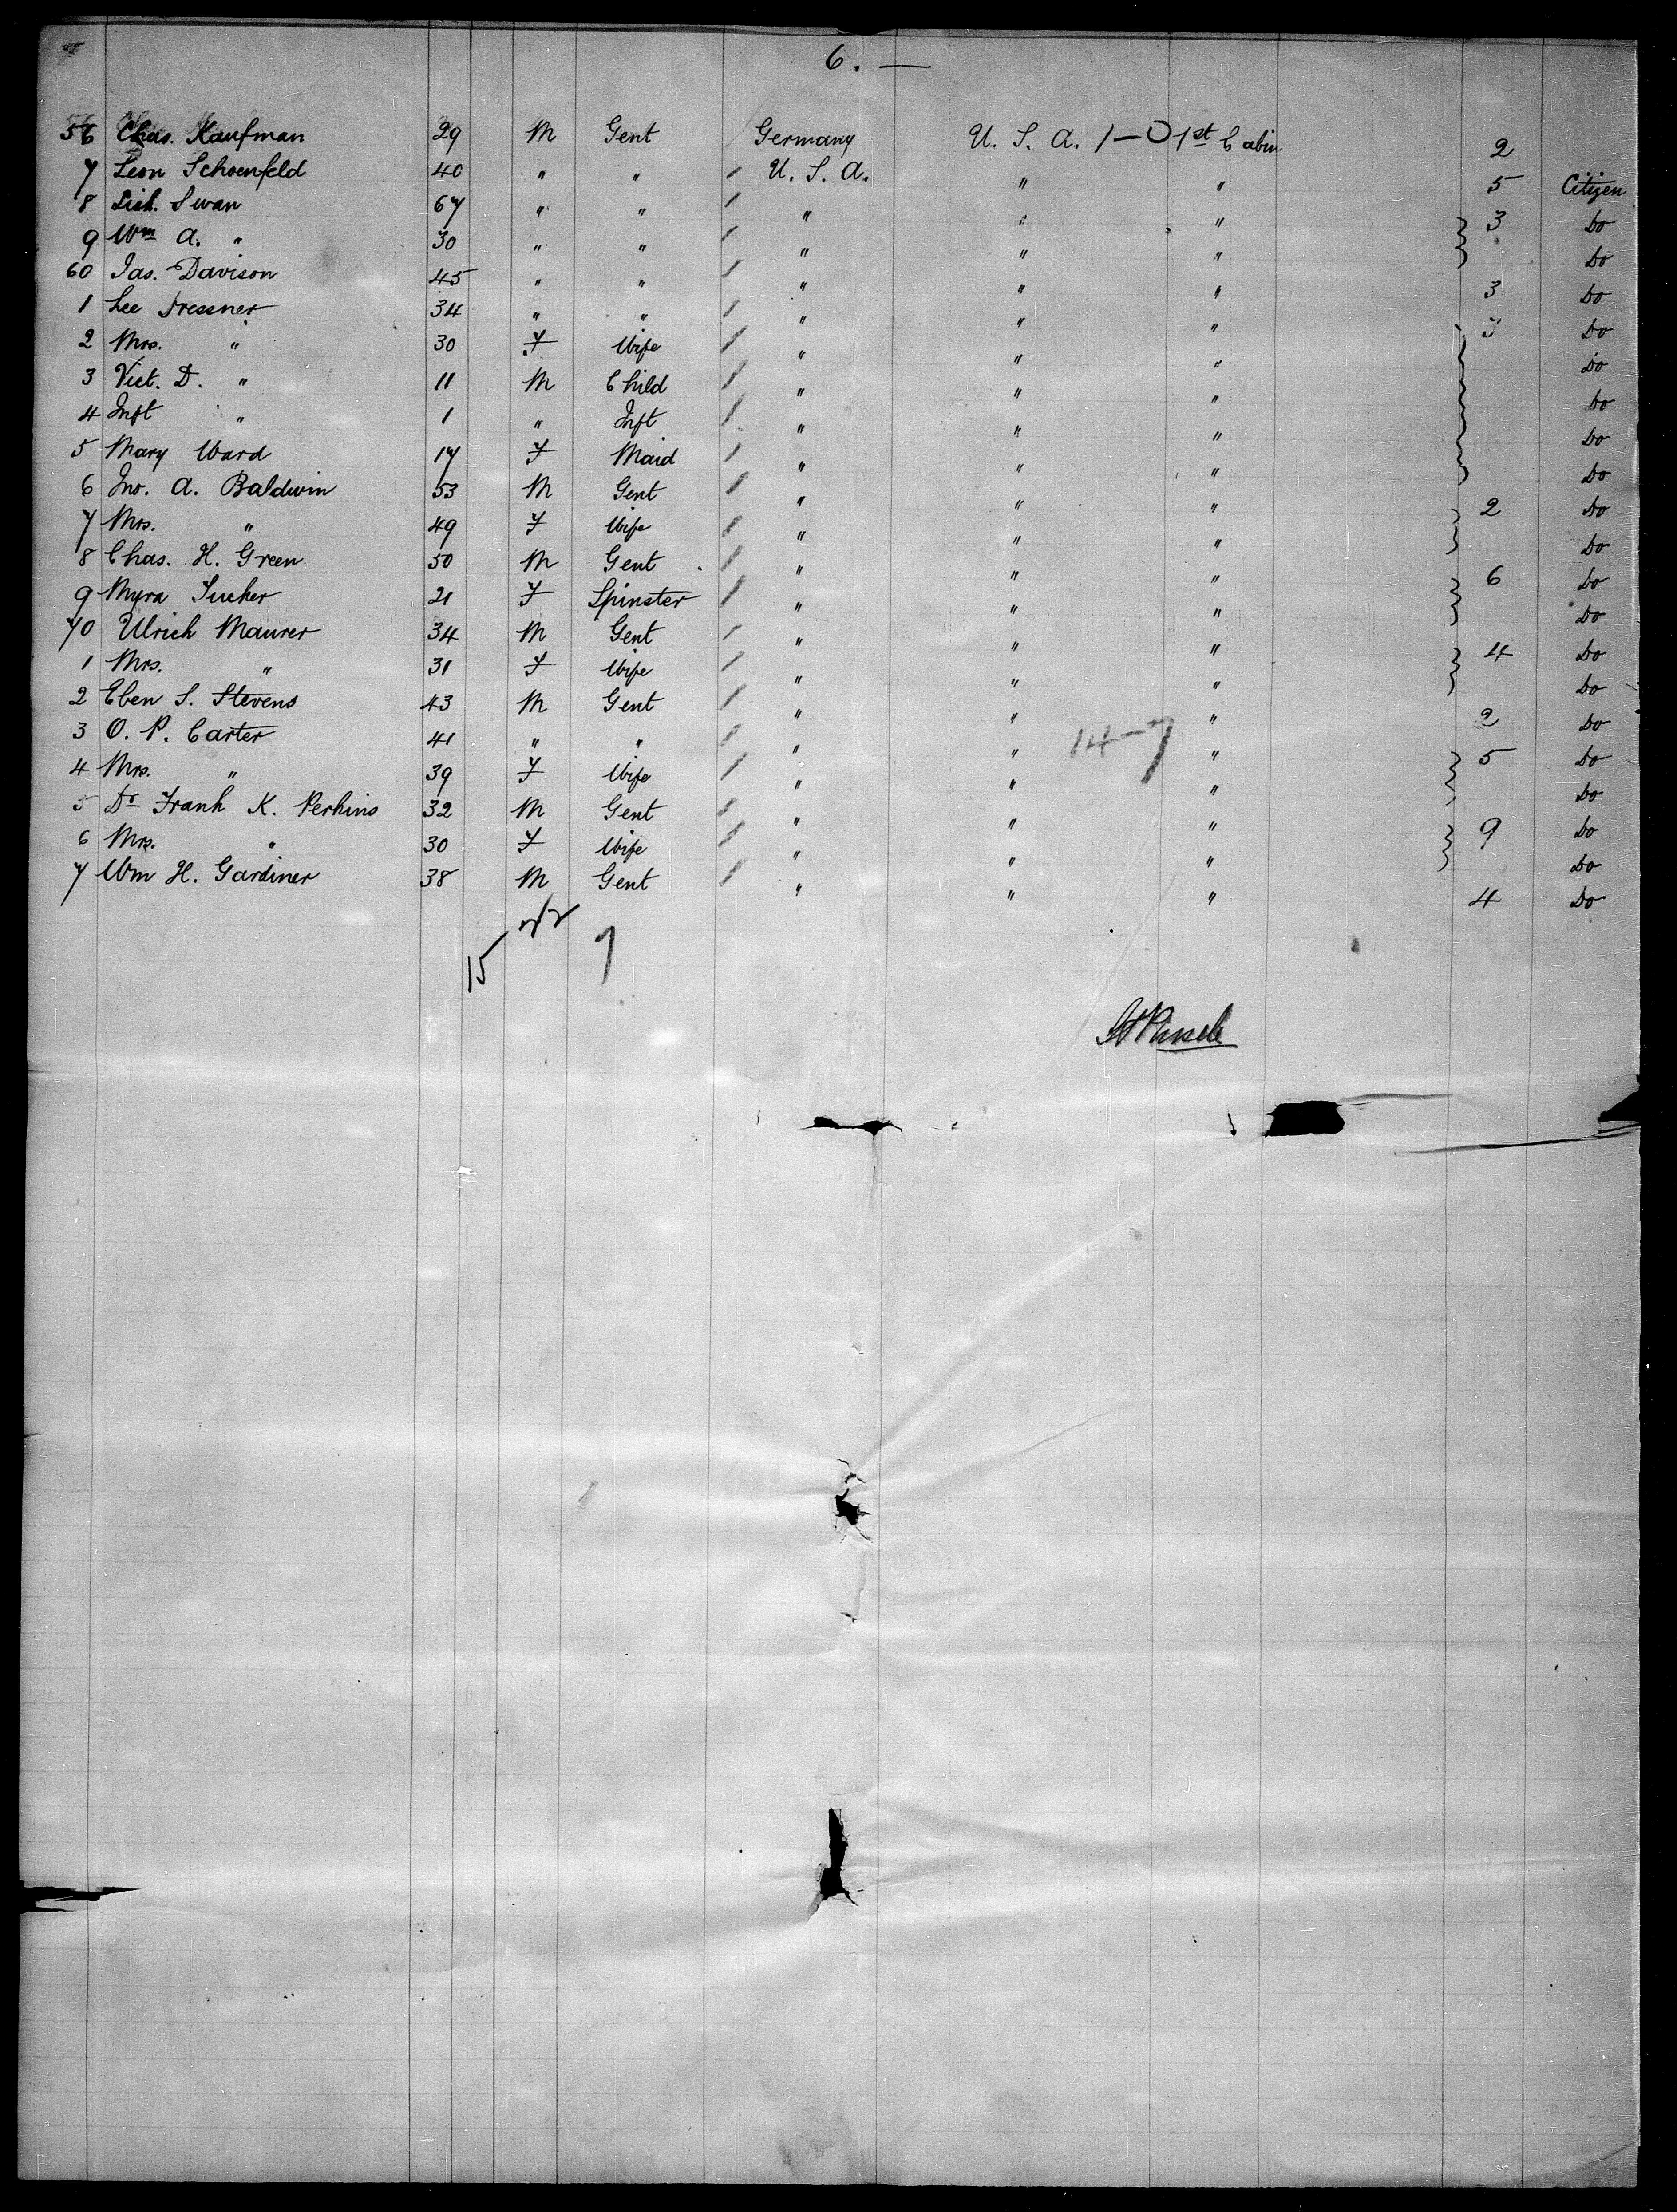 6. —
56 Chas. Kaufman 29 M Gent Germany U. S. A. 1—0 1st Cabin 2
7 Leon Schoenfeld 40 " " / U. S. A. " " 5 Citizen
8 Swan 67 " " / " " " 3 Do
9 Wm A. " 30 " " / " " " Do
60 Jas. Davison 45 " " / " " " 3 Do
1 Lee 34 " " / " " " 3 Do
2 Mrs. " 30 F Wife / " " " Do
3 Vict. D. " 11 M Child / " " " Do
4 Inft " 1 " Inft / " " " Do
5 Mary Ward 17 F Maid / " " " Do
6 Jno. A. Baldwin 53 M Gent / " " " 2 Do
7 Mrs. " 49 F Wife / " " " Do
8 Chas. H. Green 50 M Gent / " " " 6 Do
9 Myra 21 F Spinster / " " " Do
70 Ulrich Maurer 34 M Gent / " " " 4 Do
1 Mrs. " 31 F Wife / " " " Do
2 Eben S. Stevens 43 M Gent / " " " 2 Do
3 O. P. Carter 41 " " / " " 14—7 " 5 Do
4 Mrs. " 39 F Wife / " " " Do
5 Dr Frank K. Perkins 32 M Gent / " " " 9 Do
6 Mrs. " 30 F Wife / " " " Do
7 Wm H. Gardiner 38 M Gent / " " " 4 Do
15 7